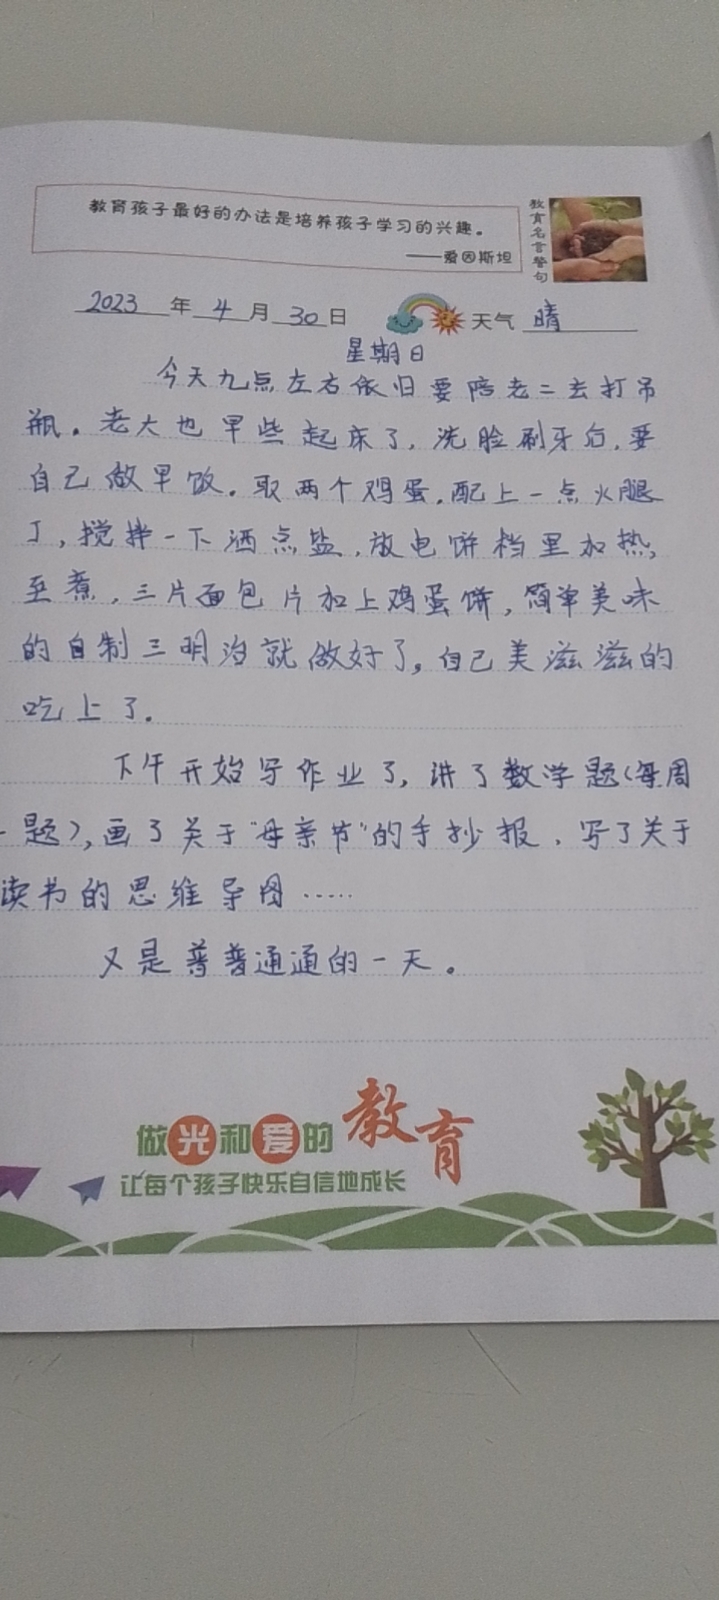 教育孩子最好的办法是培养孩子学习的兴趣。
——爱因斯坦
教育名言警句
2023年4月30日 天气 晴
星期日
今天九点左右依旧要陪老二去打吊
瓶。老大也早些起床了,洗脸刷牙后,要
自己做早饭。取两个鸡蛋,配上一点火腿
丁,搅拌一下洒点盐,放电饼档里加热,
至煮,三片面包片加上鸡蛋饼,简单美味
的自制三明治就做好了。自己美滋滋的
吃上了。
下午开始写作业了,讲了数学题(每周
一题),画了关于"母亲节"的手抄报,写了关于
读书的思维导图……
又是普普通通的一天。
做光和爱的教育
让每个孩子快乐自信地成长